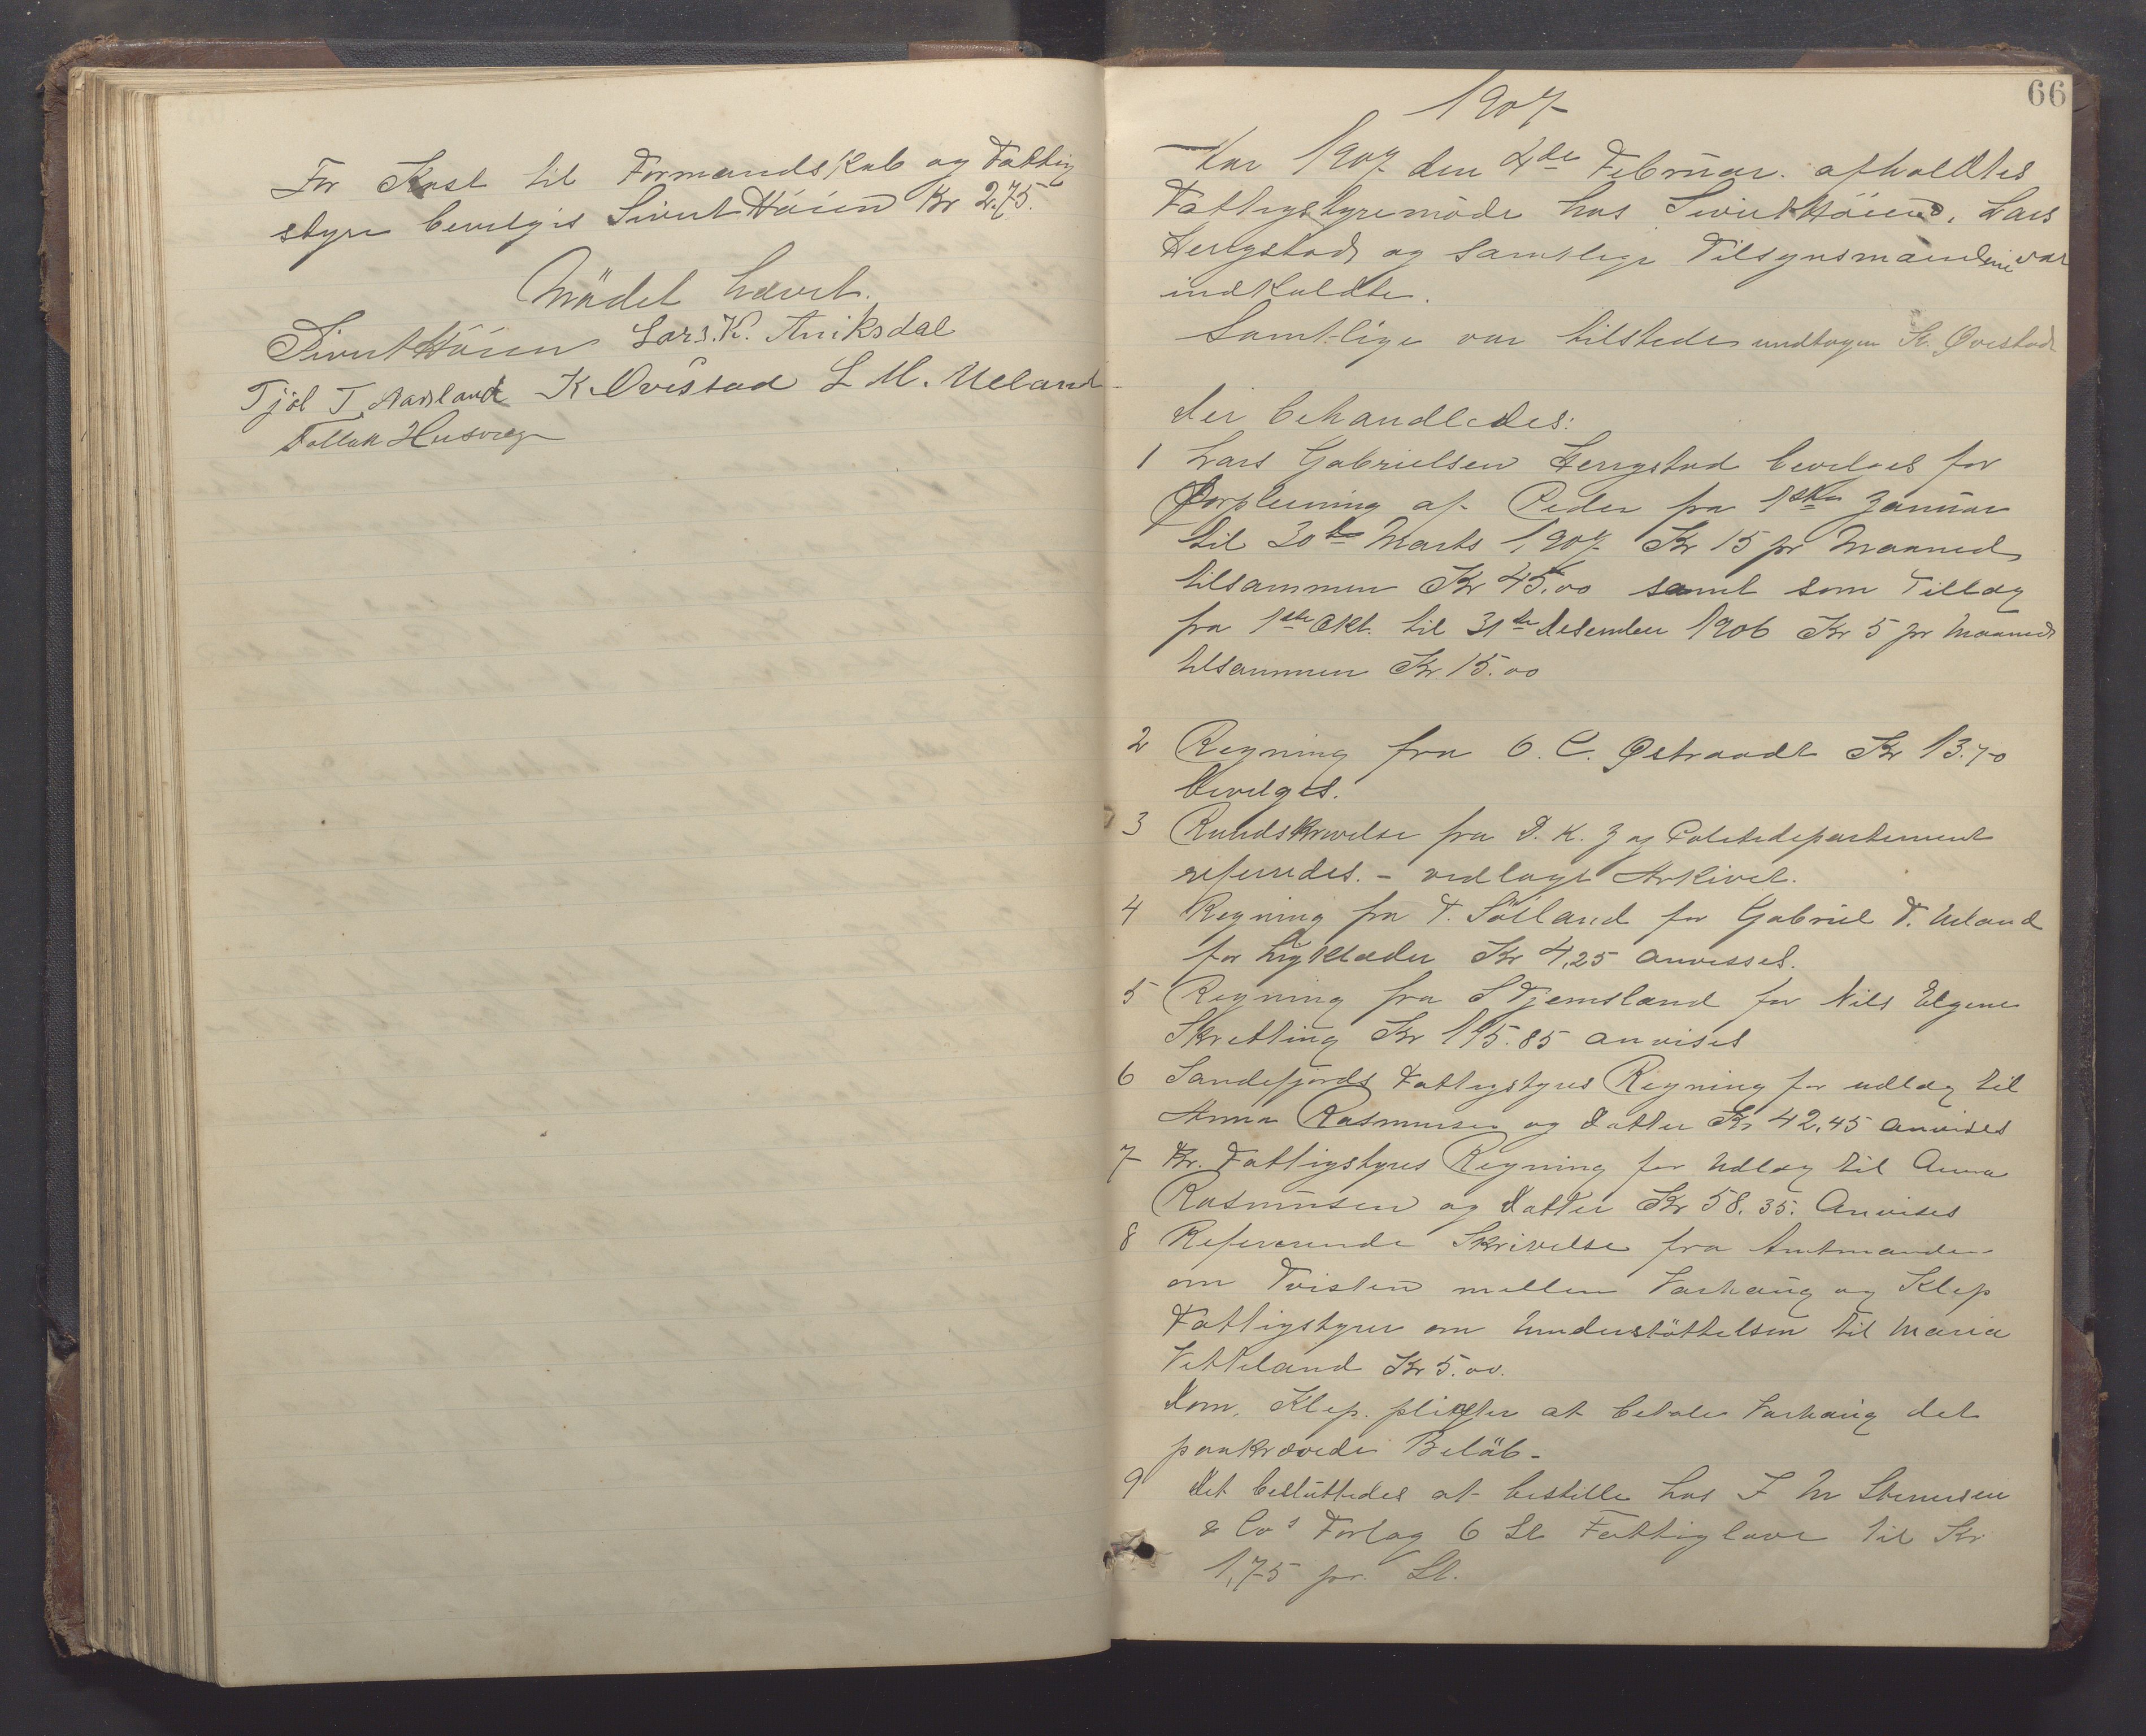 For Kost til Formandskab og Fattig
styre bevilges Sivert Höien Kr 2.75.
Mödet hævet.
Sivert Höien Lars. K. Aniksdal
Tjöl T. Aarsland K. Ovistad L M. Ueland
Tollak Husvæg
66
1907
Aar 1907 den 2de Februar. afholdtes
Fattigstyremöde hos Sivert Höien, Lars
Herigstad og samtlige Tilsynsmændene var
indkaldte.
Samtlige var tilstede undtagen K. Ovestad
der behandledes:
1 Lars Gabrielsen Herigstad beviges for
Forpleining af Peder fra 1ste Januar
til 30te Marts 1907 Kr 15 pr Maaned
tilsammen Kr 45.00 samt som Tillæg
fra 1ste Okt. til 31te Desember 1906 Kr 5 pr Maaned
tilsammen Kr 15.00
2 Regning fra O. C. Østraadt Kr 13.70
bevilges.
3 Rundskrivelse fra D. K. J og Politidepartement
refereredes. - vedlagt Arkivet.
4 Regning fra T. Sölland for Gabriel T. Ueland
for Ligklæder Kr 4,25 anvisses.
5 Regning fra S Tjemsland for Nils Elgene
Skretting Kr 115.85 anvises
6 Sandefjords Fattigstyres Regning for udlæg til
Anna Rasmusen og Datter Kr 42,45 anvises
7 Kr. Fattigstyres Regning for Udlæg til Anna
Rasmusen og Datter Kr 58.35. Anvises
8 Refererende Skrivelse fra Amtmanden
om Tvisten mellem Varhaug og Klep
Fattigstyrer om Understöttelsen til Maria
Vetteland Kr 5.00.
Dom. Klep. pligter at betale Varhaug det
paakrævede Belöb.
9 Det besluttedes at bestille hos J M Stenersen
& Cos Forlag 6 St Fattiglove til Kr
1,75 pr. St.